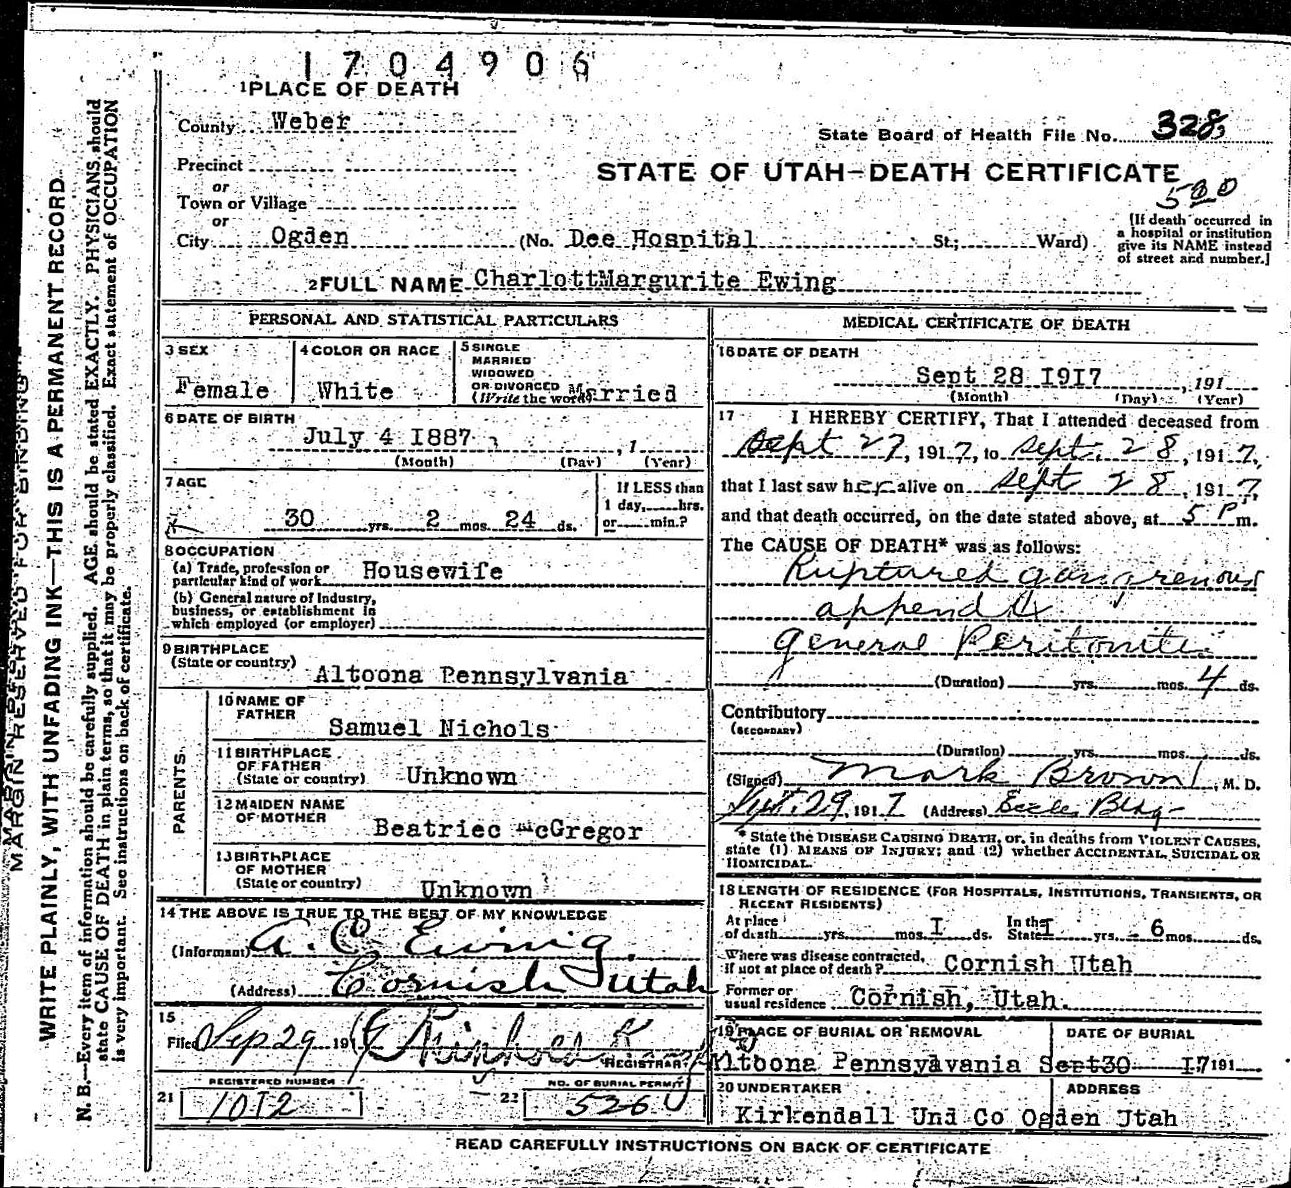 1704906
1 PLACE OF DEATH
County Weber
State Board of Health File No. 328
Precinct
or
STATE OF UTAH—DEATH CERTIFICATE
Town or Village
or
City Ogden (No. Dee Hospital St.; Ward)
[If death occurred in
a hospital or institution
give its NAME instead
of street and number.]
2 FULL NAME CharlottMargurite Ewing
PERSONAL AND STATISTICAL PARTICULARS
3 SEX
Female
4 COLOR OR RACE
White
5 SINGLE
MARRIED
WIDOWED
OR DIVORCED
(Write the word) Married
6 DATE OF BIRTH
July 4 I887 , 1
(Month) (Day) (Year)
7 AGE
30 yrs. 2 mos. 24 ds.
If LESS than
1 day, hrs.
or min.?
8 OCCUPATION
(a) Trade, profession or
particular kind of work Housewife
(b) General nature of Industry,
business, or establishment in
which employed (or employer)
9 BIRTHPLACE
(State or country) Altoona Pennsylvania
PARENTS
10 NAME OF
FATHER
Samuel Nichols
11 BIRTHPLACE
OF FATHER
(State or country) Unknown
12 MAIDEN NAME
OF MOTHER
Beatriec McGregor
13 BIRTHPLACE
OF MOTHER
(State or country) Unknown
14 THE ABOVE IS TRUE TO THE BEST OF MY KNOWLEDGE
(Informant) A. C. Ewing
(Address) Cornish Utah
15
Filed Sep 29 191
REGISTRAR
REGISTERED NUMBER
21 1012
NO. OF BURIAL PERMIT
22 526
MEDICAL CERTIFICATE OF DEATH
16 DATE OF DEATH
Sept 28 I917 , 191
(Month) (Day) (Year)
17 I HEREBY CERTIFY, That I attended deceased from
Sept 27, 1917, to Sept. 28, 1917,
that I last saw her alive on Sept 28, 1917,
and that death occurred, on the date stated above, at 5 P m.
The CAUSE OF DEATH* was as follows:
Ruptured gangrenous
appendix
general Peritonitis
(Duration) yrs. mos. 4 ds.
Contributory
(SECONDARY)
(Duration) yrs. mos. ds.
(Signed) Mark Brown, M. D.
Sept. 29, 1917 (Address) Eccles Bldg
* State the DISEASE CAUSING DEATH, or, in deaths from VIOLENT CAUSES,
state (1) MEANS OF INJURY; and (2) whether ACCIDENTAL, SUICIDAL OR
HOMICIDAL.
18 LENGTH OF RESIDENCE (FOR HOSPITALS, INSTITUTIONS, TRANSIENTS, OR
RECENT RESIDENTS)
At place
of death yrs. mos. I ds.
In the
State I yrs. 6 mos. ds.
Where was disease contracted,
if not at place of death? Cornish Utah
Former or
usual residence Cornish, Utah.
19 PLACE OF BURIAL OR REMOVAL
Altoona Pennsylvania
DATE OF BURIAL
Sept30 I7 191
20 UNDERTAKER
Kirkendall Und Co
ADDRESS
Ogden Utah
READ CAREFULLY INSTRUCTIONS ON BACK OF CERTIFICATE
MARGIN RESERVED FOR BINDING
WRITE PLAINLY, WITH UNFADING INK—THIS IS A PERMANENT RECORD
N. B.—Every item of information should be carefully supplied. AGE should be stated EXACTLY. PHYSICIANS should
state CAUSE OF DEATH in plain terms, so that it may be properly classified. Exact statement of OCCUPATION
is very important. See instructions on back of certificate.